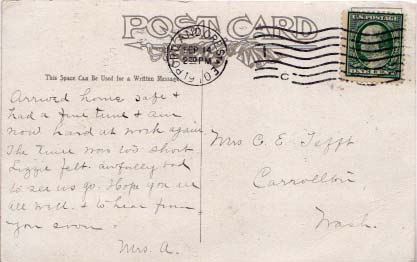 POST CARD
PORTLAND ORE
SEP 14
2 30 PM
C
U.S. POSTAGE
ONE CENT
This Space Can Be Used for a Written Message
Arrived home safe &
had a fine time & am
now hard at work again
The time was too short
Lizzie felt awfully bad
to see us go. Hope you are
all well. & to hear from
you soon.
Mrs. A.
Mrs C. E. Tefft
Carrollton
Wash.